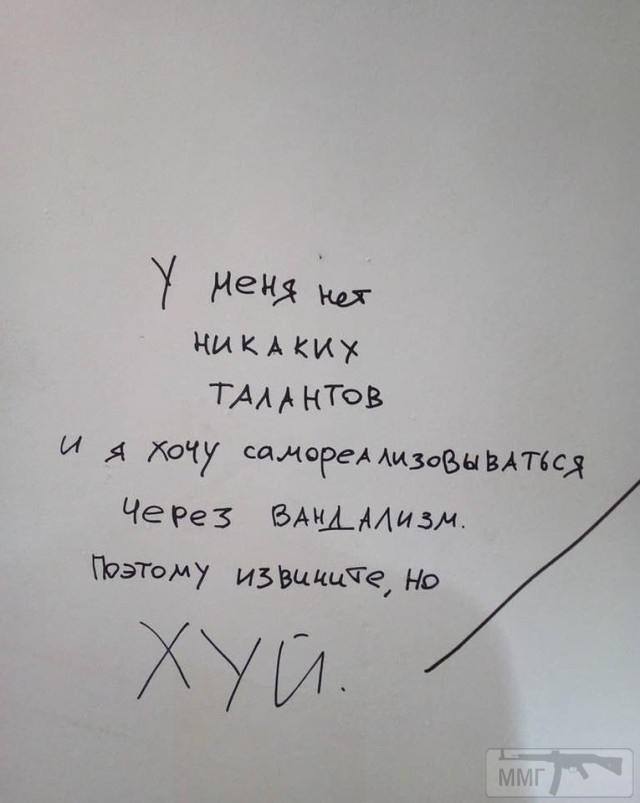 У меня нет
никаких
талантов
и я хочу самореализовываться
через вандализм.
Поэтому извините, но
ХУЙ.
ММГ